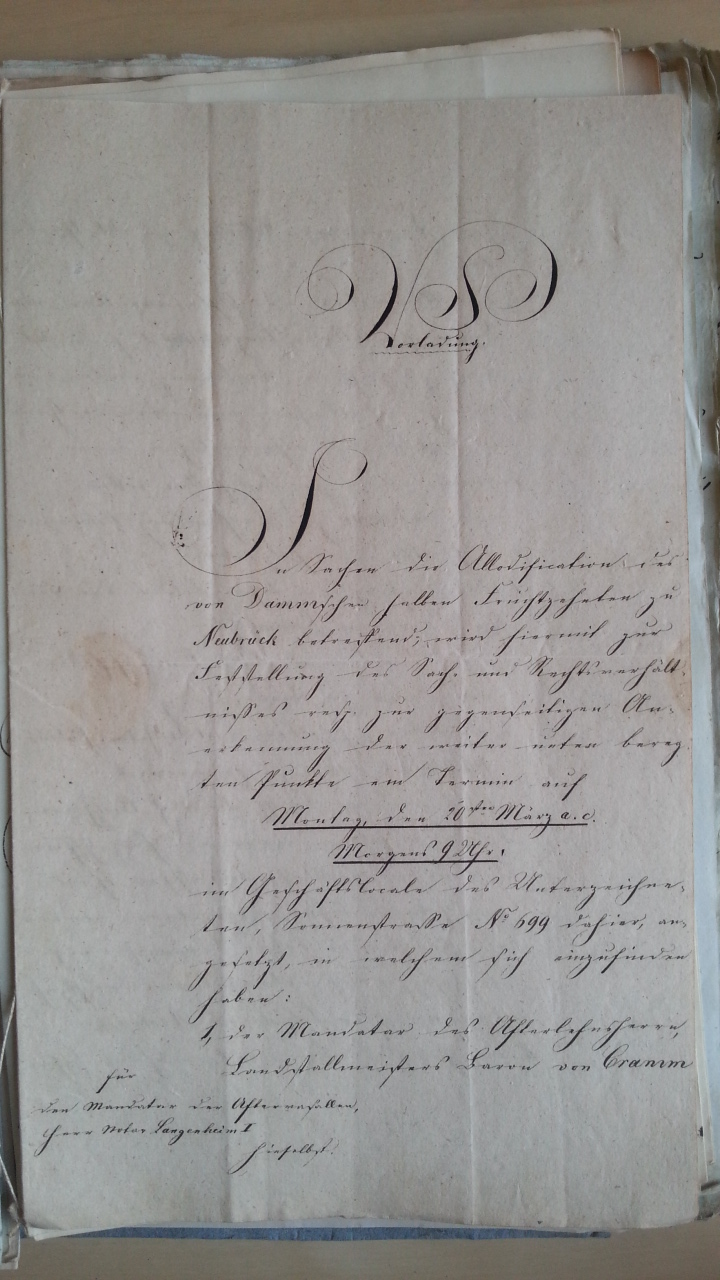 Vorladung.
In Sachen die Allodification des
von Dammschen halben Fruchtzehnten zu
Neubrück betreffend, wird hiermit zur
Feststellung des Sach- und Rechtsverhält-
nisses resp. zur gegenseitigen An-
erkennung der weiter unten bereg-
ten Punkte ein Termin auf
Montag, den 20sten März a. c.
Morgens 9 Uhr,
im Geschäftslocale des Unterzeichne-
ten, Sonnenstrasse No 699 dahier, an-
gesetzt, in welchem sich einzufinden
haben:
1, der Mandatar des Afterlehnsherrn,
Landstallmeisters Baron von Cramm
für
den Mandatar der Aftervasallen,
Herr Notar Langenheim I
hieselbst.